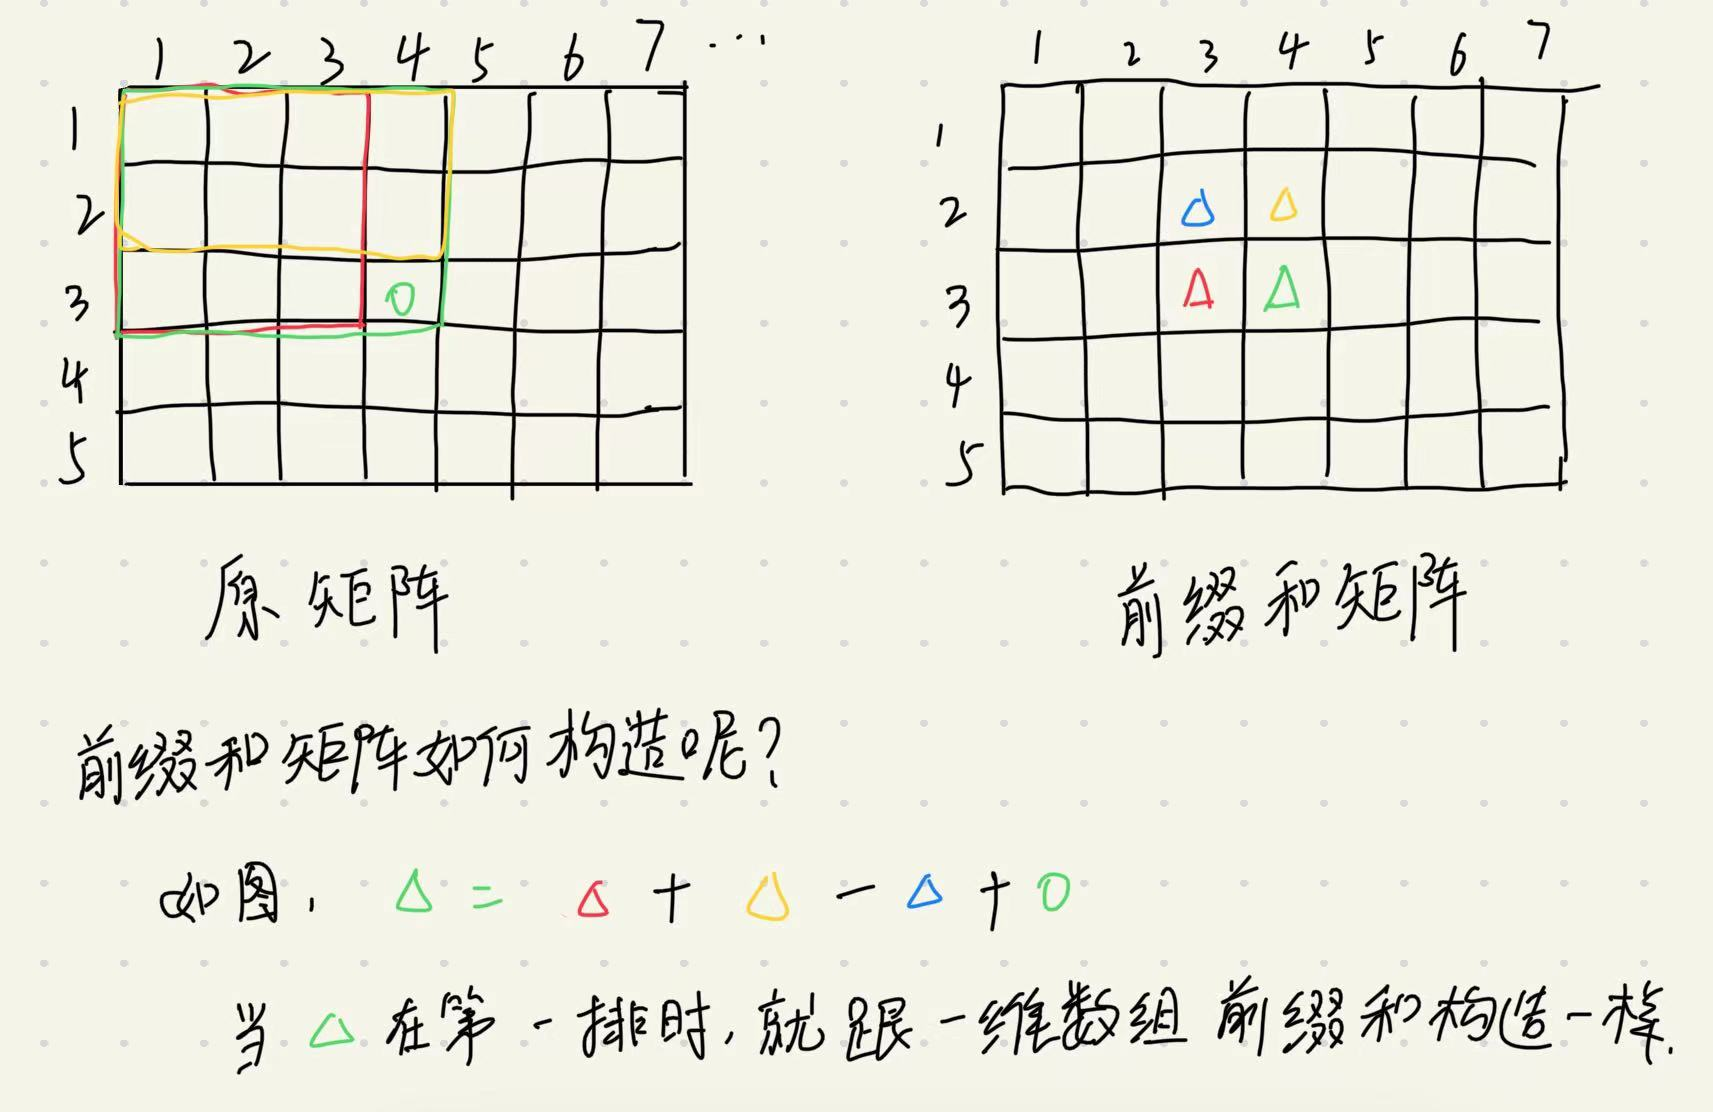 1 2 3 4 5 6 7 ...
1
2
3
4
5
1 2 3 4 5 6 7
1
2
3
4
5
原矩阵
前缀和矩阵
前缀和矩阵如何构造呢?
如图, △ = △ + △ - △ + O
当 △ 在第一排时, 就跟一维数组前缀和构造一样.